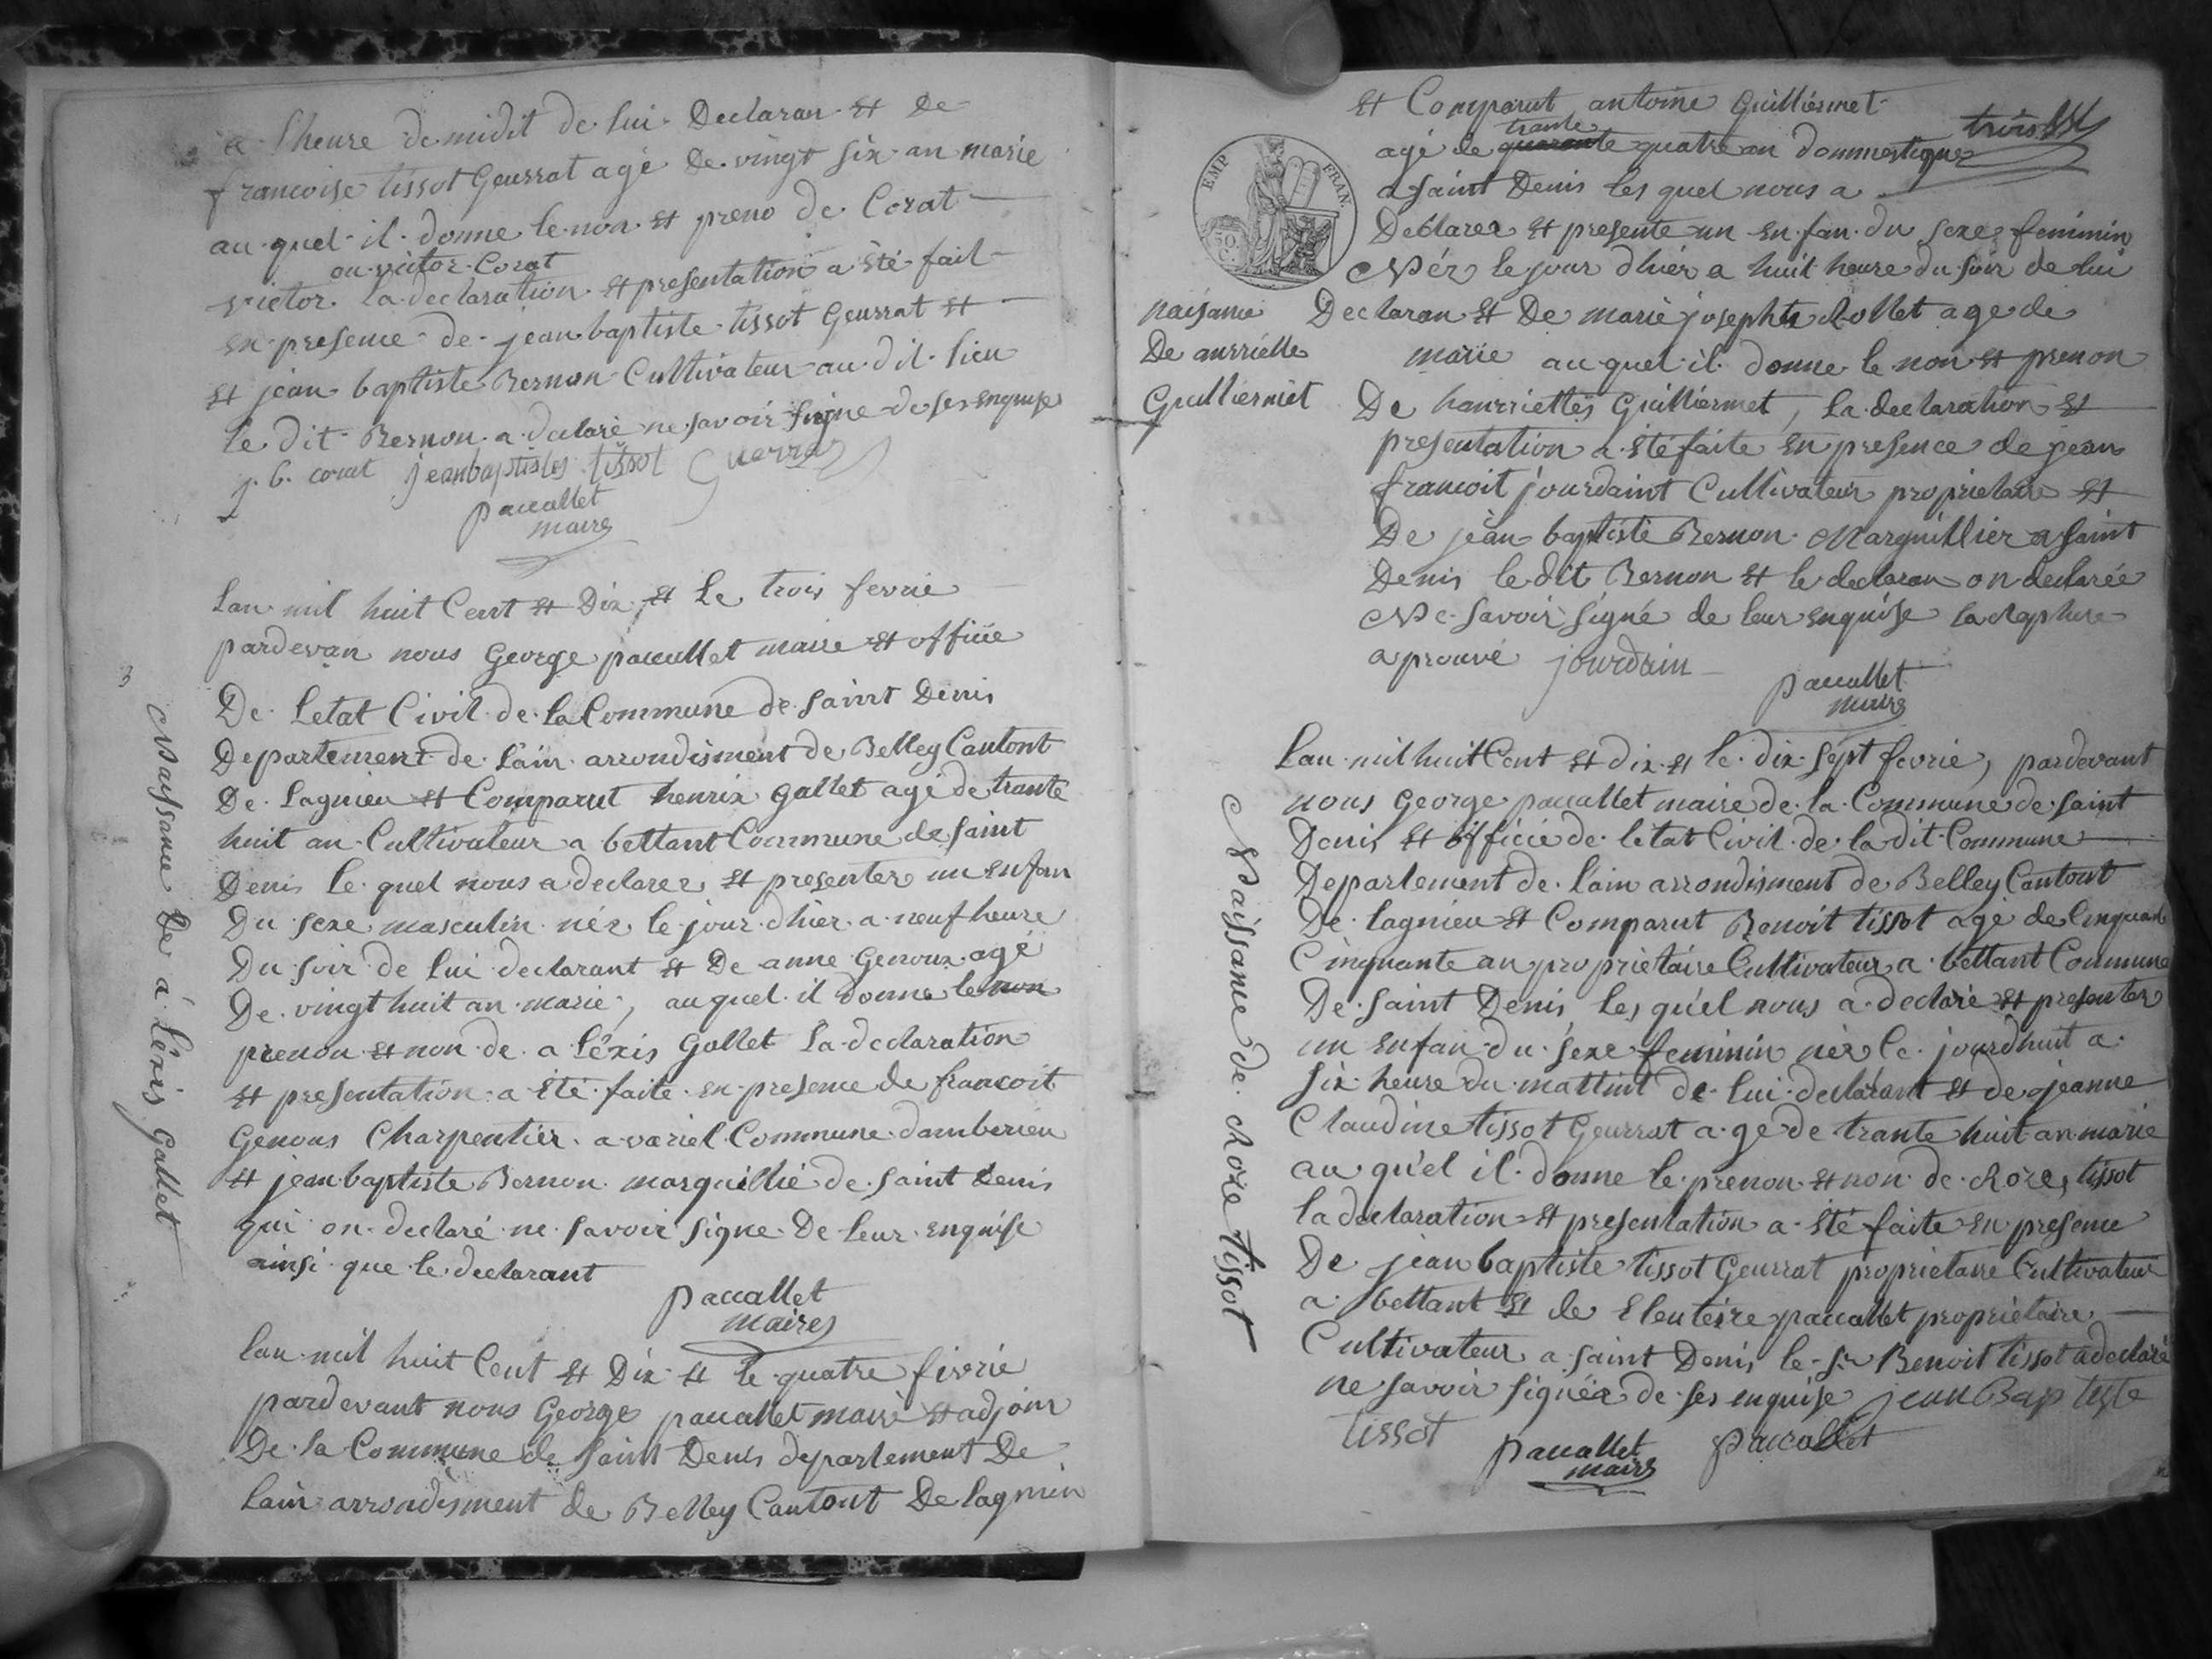 a l'heure de midit de lui Declaran et De
francoise tissot Geurrat agé De vingt six an marie
au quel il donne le non et preno de Corat
ou victor Corat
victor la declaration et presentation a été fait
en presence de jean baptiste tissot Geurrat et
et jean baptiste Bernon Cultivateur au dit lieu
le dit Bernon a declaré ne savoir signe de ses enquise
j. b. corat jean baptistes tissot Guerra
paccallet
maire
3
Naissance De a lexis gallet
lan mil huit Cent et Dix et Le trois fevrie
pardevan nous George paccallet maire et officie
De Letat Civil de la Commune de saint Denis
Departement de lain arrondisment de Belley Cantont
De Lagnieu et Comparut henrix gallet agé de trante
huit an Cultivateur a bettant Commune de saint
Denis le quel nous a declarer et presenter un enfan
Du sexe masculin nér le jour d'hier a neuf heure
Du soir de lui declarant et De anne Genoux agé
De vingt huit an marie, au quel il donne le non
prenon et non de a léxis Gallet la declaration
et presentation a été faite en presence de francoit
Genous Charpentier a variel Commune damberieu
et jean baptiste Bernon marguillié de saint Denis
qui on declaré ne savoir signe De leur enquise
ainsi que le declarant
paccallet
maire
lan mil huit Cent et Dix et le quatre fivrie
pardevant nous George paccallet maire et adjoin
De la Commune de saint Denis departement De
lain arrondisment de Belley Cantont De lagnieu
et Comparut antoine Guilliermet
trante trois
agé de quarante quatre an dommestique
a saint Denis les quel nous a
EMP FRAN.
50 C.
Declarer et presente un enfan du sexe feminin
Nér le jour d'hier a huit heure du soir de lui
Declaran et De marie josephte Rollet age de
marie au quel il donne le non et prenon
naisance
De anrriette
Guilliermet
De hanrriettes Guilliermet, la declaration et
presentation a été faite en presence de jean
francoit jourdaint Cultivateur proprietaire et
De jean baptiste Bernon Marguillier a saint
Denis le dit Bernon et le declaran on declarée
Ne savoir signé de leur enquise la rapture
a prouvé jourdain
paccallet
maire
Naissance de Roze tissot
lan mil huit Cent et dix et le dix sept fevrie, pardevant
nous George paccallet maire de la Commune de saint
Denis et officié de letat Civil de la dit Commune
Departement de lain arrondisment de Belley Cantont
De lagnieu et Comparut Benoit tissot agé de Cinquant
Cinquante an propriétaire Cultivateur a bettant Commune
De saint Denis les quel nous a declaré et presenter
un enfan du sexe feminin nér le jourdhuit a
six heure du mattint de lui declarant et de jeanne
Claudine tissot Geurrat a gé de trante huit an marie
au quél il donne le prenon et non de Roze tissot
la declaration et presentation a été faite en presence
De jean baptiste tissot Geurrat proprietaire Cultivateur
a bettant et de Eleuteire paccallet propriétaire
Cultivateur a saint Denis le sr Benoit tissot a declaré
ne savoir signér de ses enquise jean Baptiste
tissot paccallet paccallet
maire